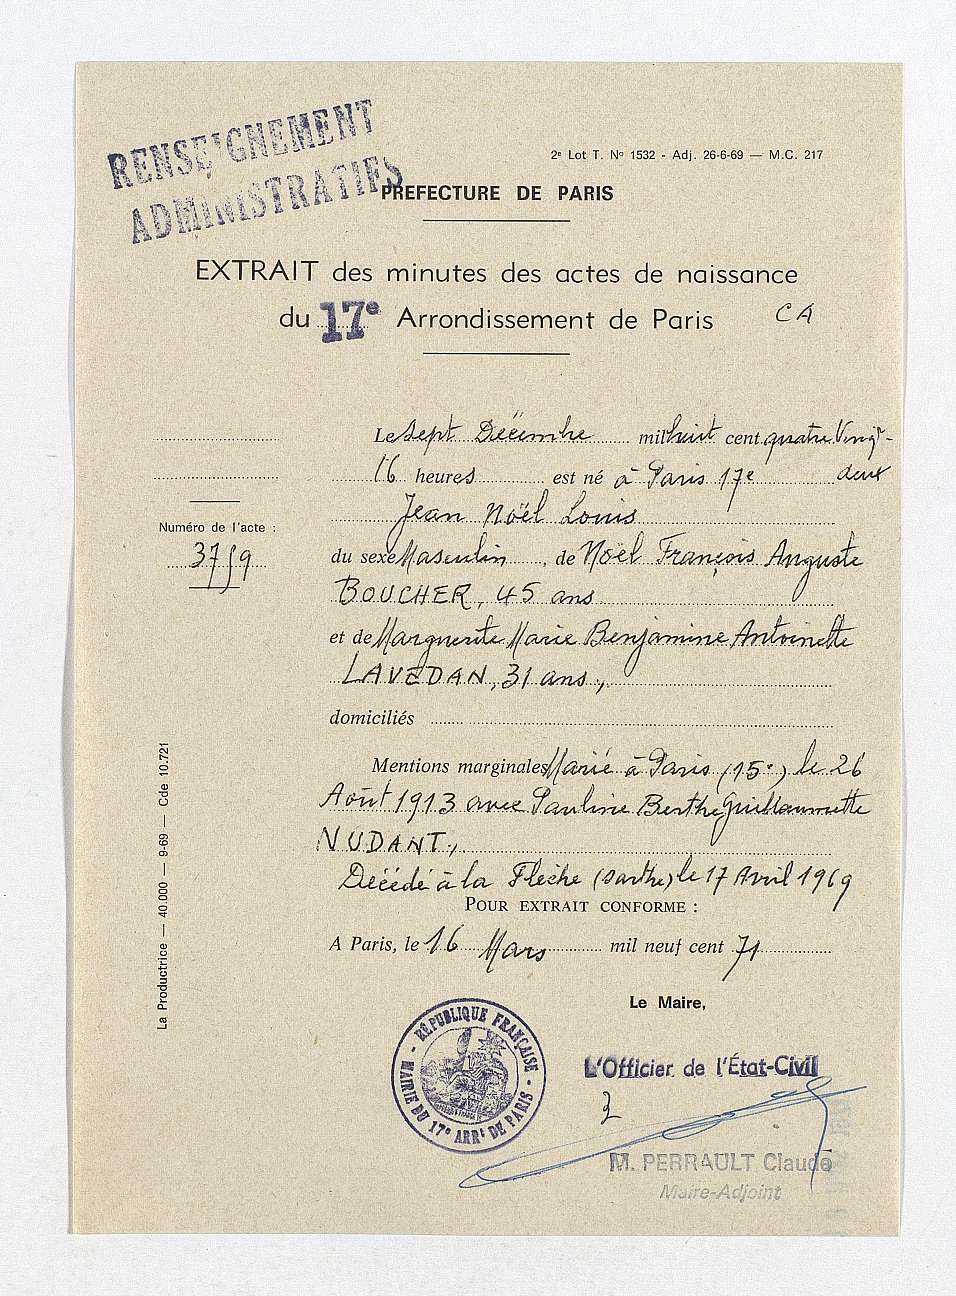 RENSEIGNEMENT
ADMINISTRATIFS
2e Lot T. No 1532 - Adj. 26-6-69 — M.C. 217
PREFECTURE DE PARIS
EXTRAIT des minutes des actes de naissance
du 17e Arrondissement de Paris CA
Le sept Décembre mil huit cent quatre Vingt-
16 heures est né à Paris 17e deux
Jean Noël Louis
Numéro de l'acte :
du sexe Masculin, de Noël François Auguste
BOUCHER, 45 ans
et de Marguerite Marie Benjamine Antoinette
LAVEDAN, 31 ans,
domiciliés
Mentions marginales Marié à Paris (15e) le 26
Août 1913 avec Pauline Berthe Guillaumette
NUDANT.,
Décédé à la Flèche (Sarthe) le 17 Avril 1969
POUR EXTRAIT CONFORME :
A Paris, le 16 Mars mil neuf cent 71
La Productrice — 40.000 — 9-69 — Cde 10.721
Le Maire,
RÉPUBLIQUE FRANÇAISE
MAIRIE DU 17e ARRt DE PARIS
L'Officier de l'État-Civil
M. PERRAULT Claude
Maire-Adjoint